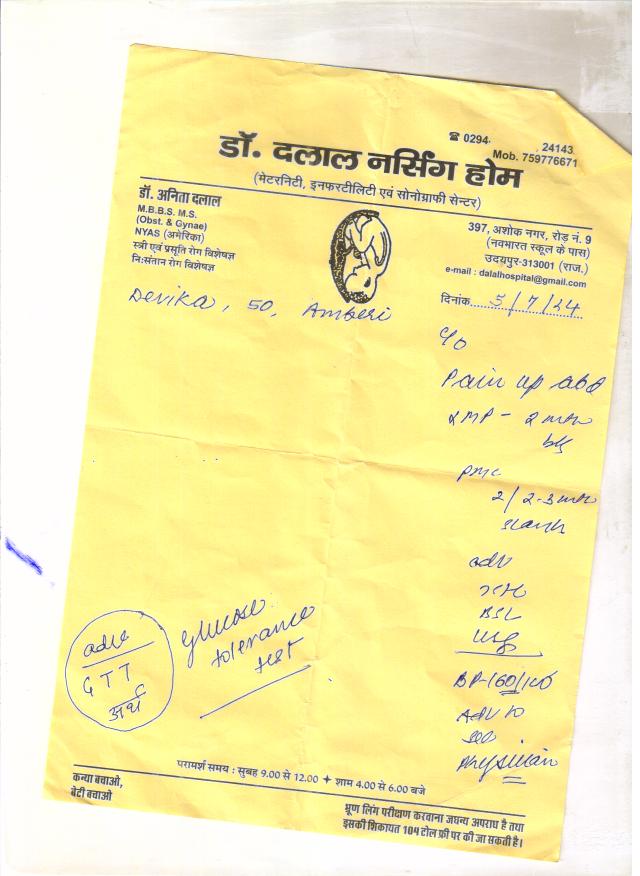 ☎ 0294- , 24143
Mob. 759776671
डॉ. दलाल नर्सिंग होम
(मेटरनिटी, इनफरटीलिटी एवं सोनोग्राफी सेन्टर)
डॉ. अनिता दलाल
M.B.B.S. M.S.
(Obst. & Gynae)
NYAS (अमेरिका)
स्त्री एवं प्रसूति रोग विशेषज्ञ
नि:संतान रोग विशेषज्ञ
397, अशोक नगर, रोड़ नं. 9
(नवभारत स्कूल के पास)
उदयपुर-313001 (राज.)
e-mail : dalalhospital@gmail.com
दिनांक 5/7/24
Devika, 50, Amberi
c/o
Pain up abd
LMP - 2 mth
PMC
2/2-3 mth
adv
BSL
USG
BP-160/100
Adv to
see
Physician
adv
GTT
अर्थ
glucose
tolerance
test
परामर्श समय : सुबह 9.00 से 12.00 ✦ शाम 4.00 से 6.00 बजे
कन्या बचाओ,
बेटी बचाओ
भ्रूण लिंग परीक्षण करवाना जघन्य अपराध है तथा
इसकी शिकायत 104 टोल फ्री पर की जा सकती है।